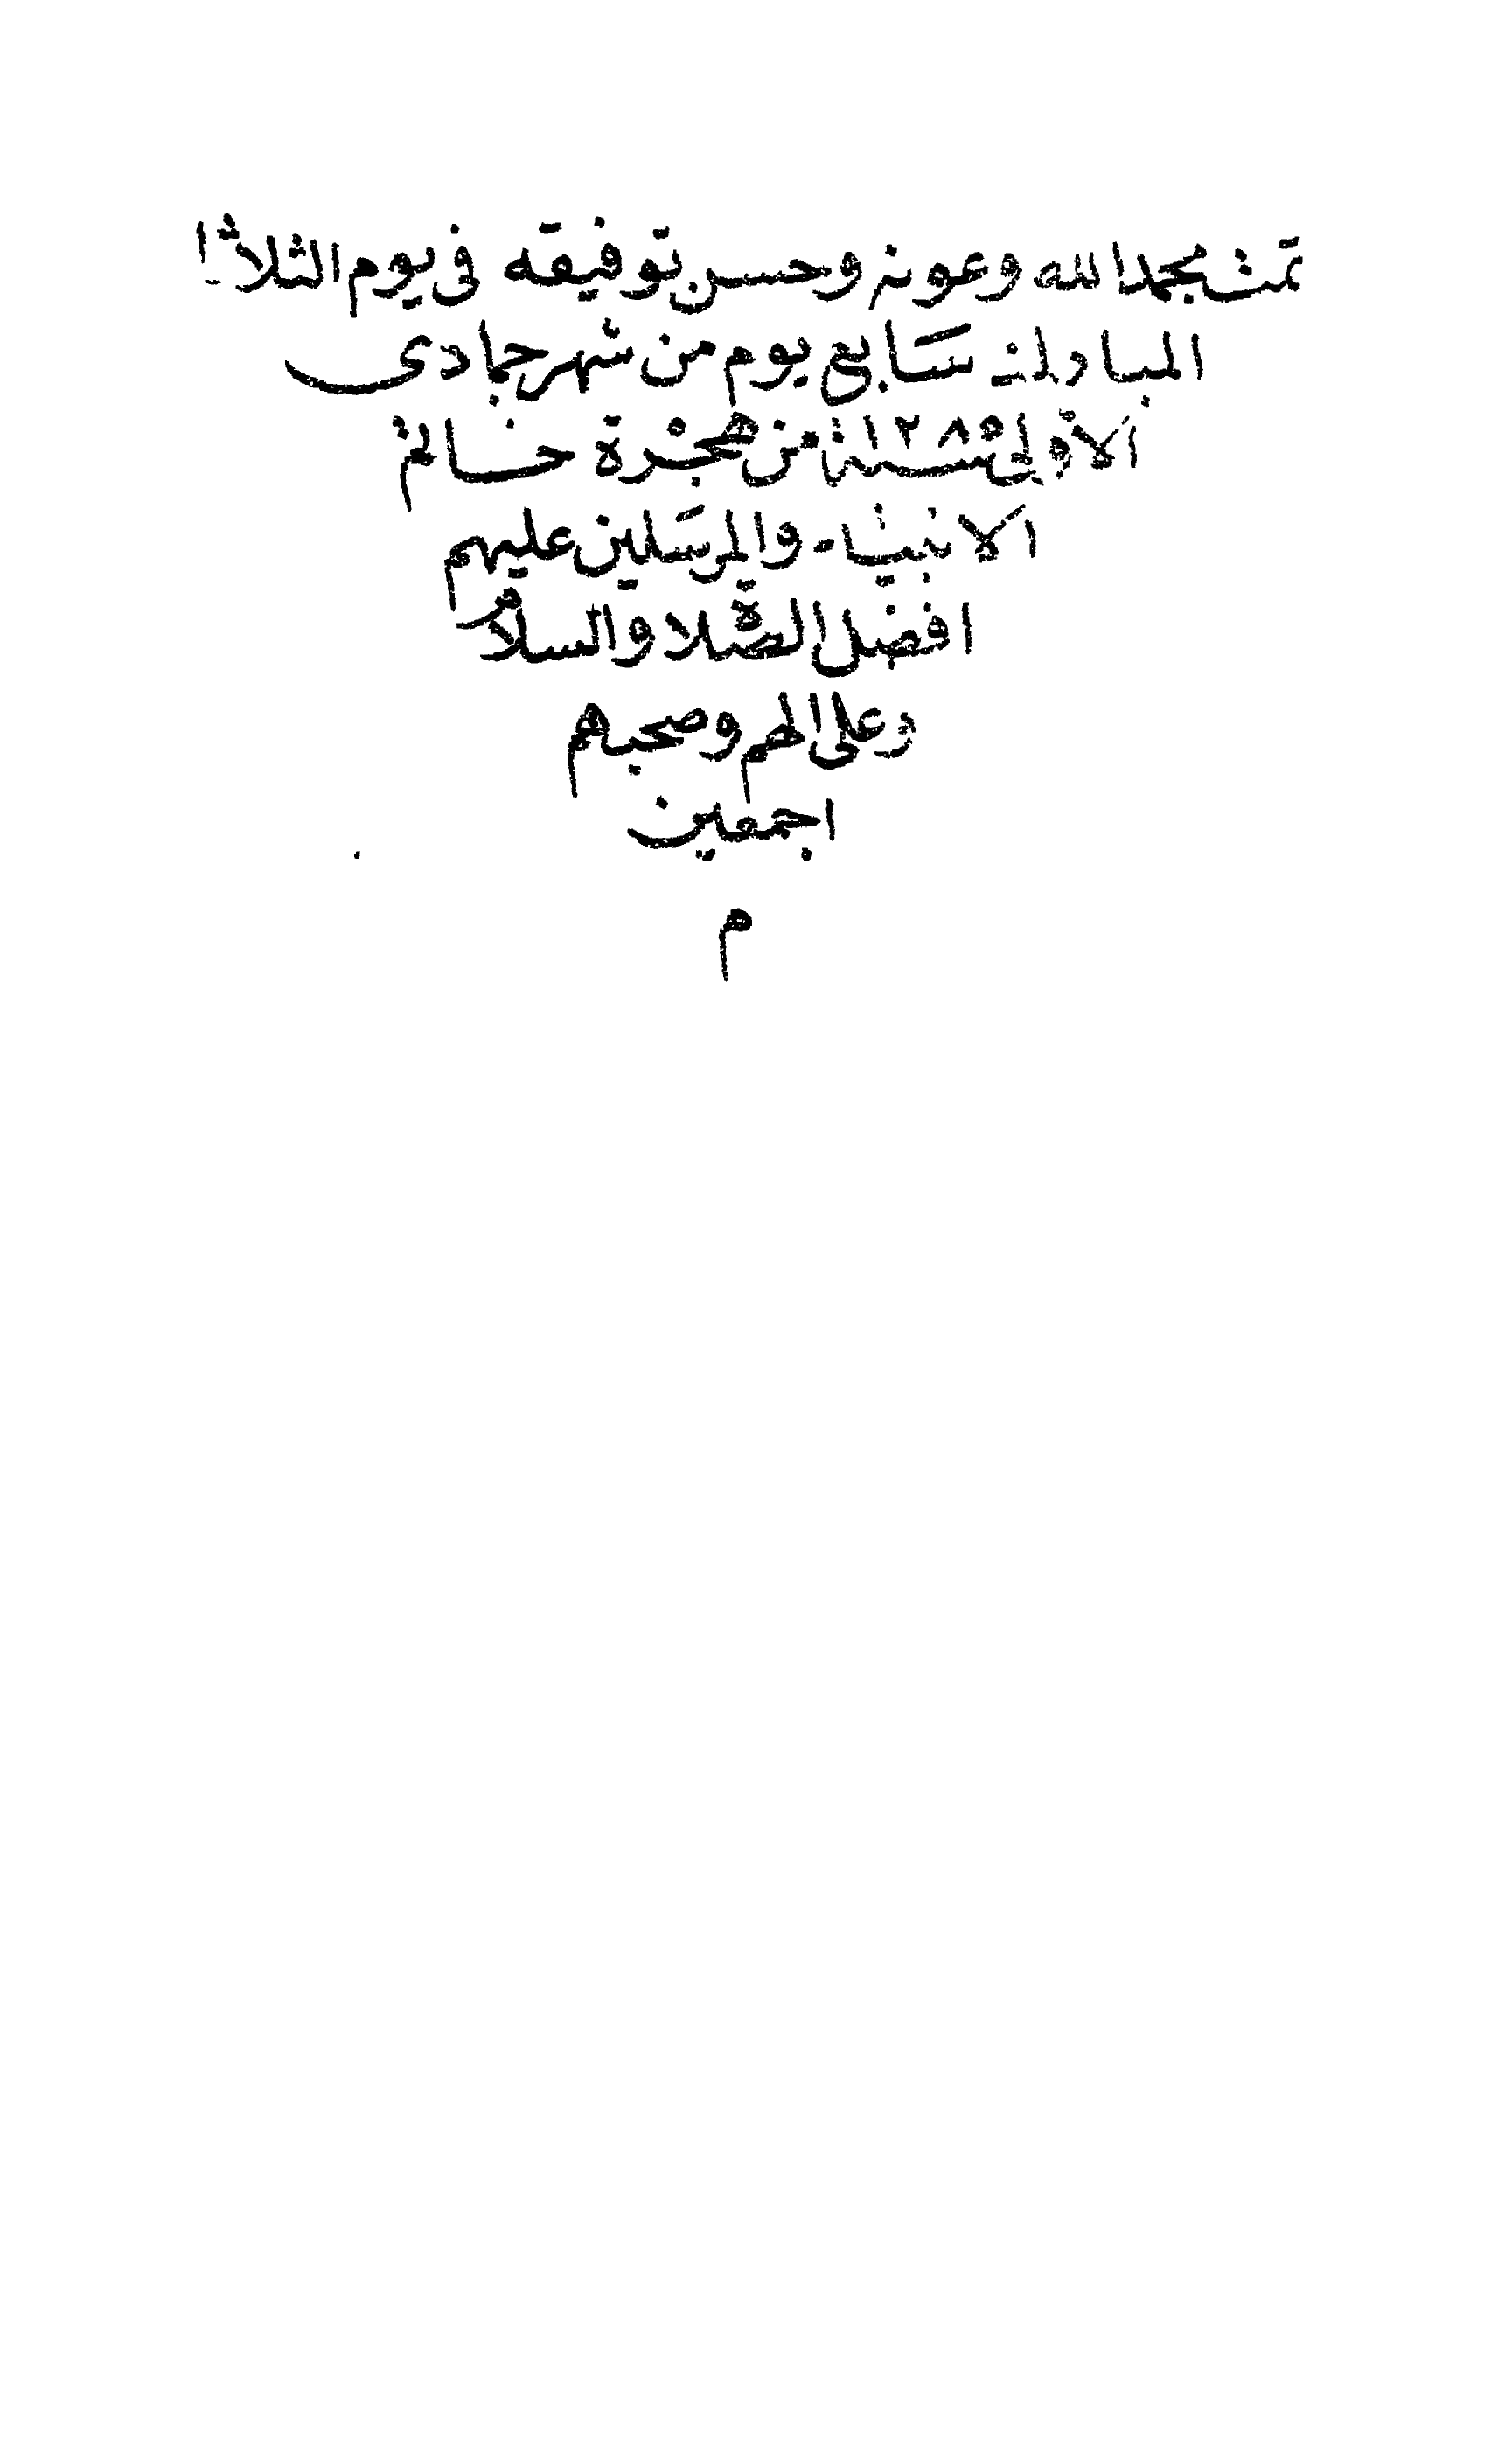 تمت بحمد الله وعونه وحسن توفيقه في يوم الثلاثا
المبارك سابع يوم من شهر جمادى
الأولى سنة ١٢٨٥ من هجرة خاتم
الانبياء والمرسلين عليهم
افضل الصلاة والسلام
وعلى الهم وصحبهم
اجمعين
م